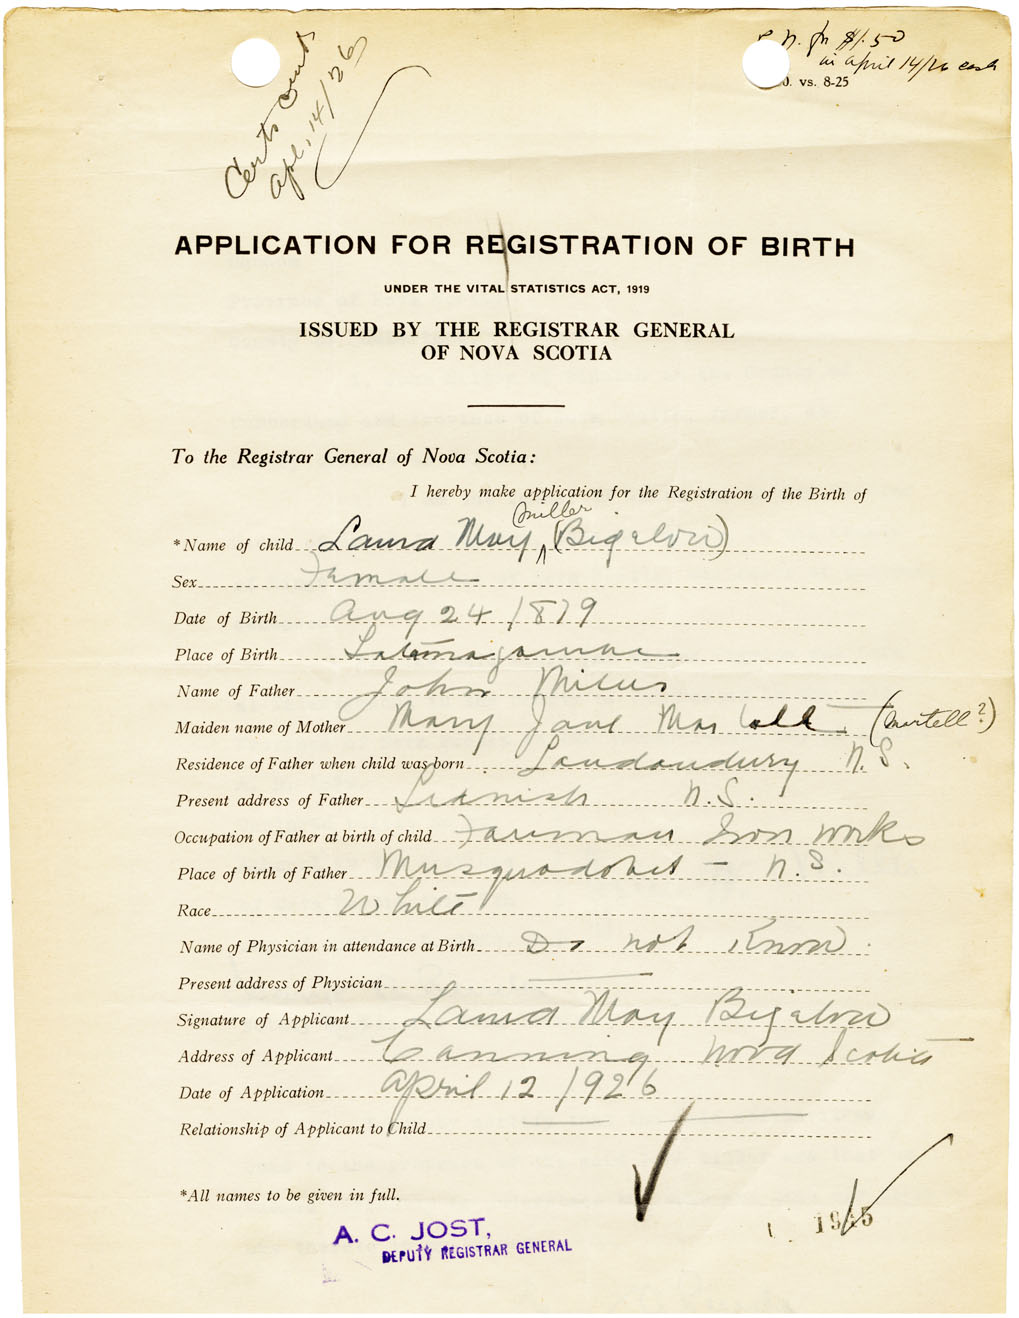 Certs sent
Apl. 14/26
P. N. for $1.50
in April 14/26 cash
0. vs. 8-25
APPLICATION FOR REGISTRATION OF BIRTH
UNDER THE VITAL STATISTICS ACT, 1919
ISSUED BY THE REGISTRAR GENERAL
OF NOVA SCOTIA
To the Registrar General of Nova Scotia:
I hereby make application for the Registration of the Birth of
Miller
*Name of child Laura May ^ (Bigelow)
Sex Female
Date of Birth Aug 24 / 1879
Place of Birth
Name of Father John
Maiden name of Mother Mary Jane (Martell?)
Residence of Father when child was born N.S.
Present address of Father N.S.
Occupation of Father at birth of child Iron works
Place of birth of Father Musquodobet - N.S.
Race White
Name of Physician in attendance at Birth Do not Know
Present address of Physician
Signature of Applicant Laura May Bigelow
Address of Applicant Canning Nova Scotia
Date of Application April 12 / 1926
Relationship of Applicant to Child
*All names to be given in full.
A. C. JOST,
DEPUTY REGISTRAR GENERAL